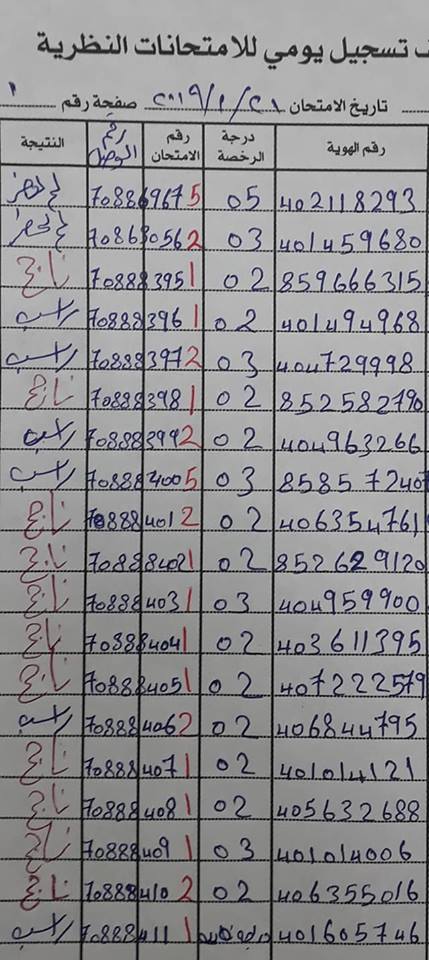 تسجيل يومي للامتحانات النظرية
تاريخ الامتحان ٢٠١٩/١/٢٨ صفحة رقم ١
رقم الهوية درجة الرخصة رقم الامتحان رقم الوصل النتيجة
402118293 05 5 70886967 لم يحضر
401459680 03 2 70868056 لم يحضر
859666315 02 1 70888395 ناجح
401494968 02 1 70888396 راسب
404729998 03 2 70888397 راسب
852582790 02 1 70888398 ناجح
404963266 02 2 70888399 راسب
858572407 03 5 70888400 راسب
406354761 02 2 70888401 ناجح
852629120 02 1 70888402 ناجح
404959900 03 1 70888403 ناجح
403611395 02 1 70888404 ناجح
407222579 02 1 70888405 ناجح
406844795 02 2 70888406 راسب
401014121 02 1 70888407 ناجح
405632688 02 1 70888408 ناجح
401014006 03 1 70888409 ناجح
406355016 02 2 70888410 ناجح
401605746 1 70888411 راسب